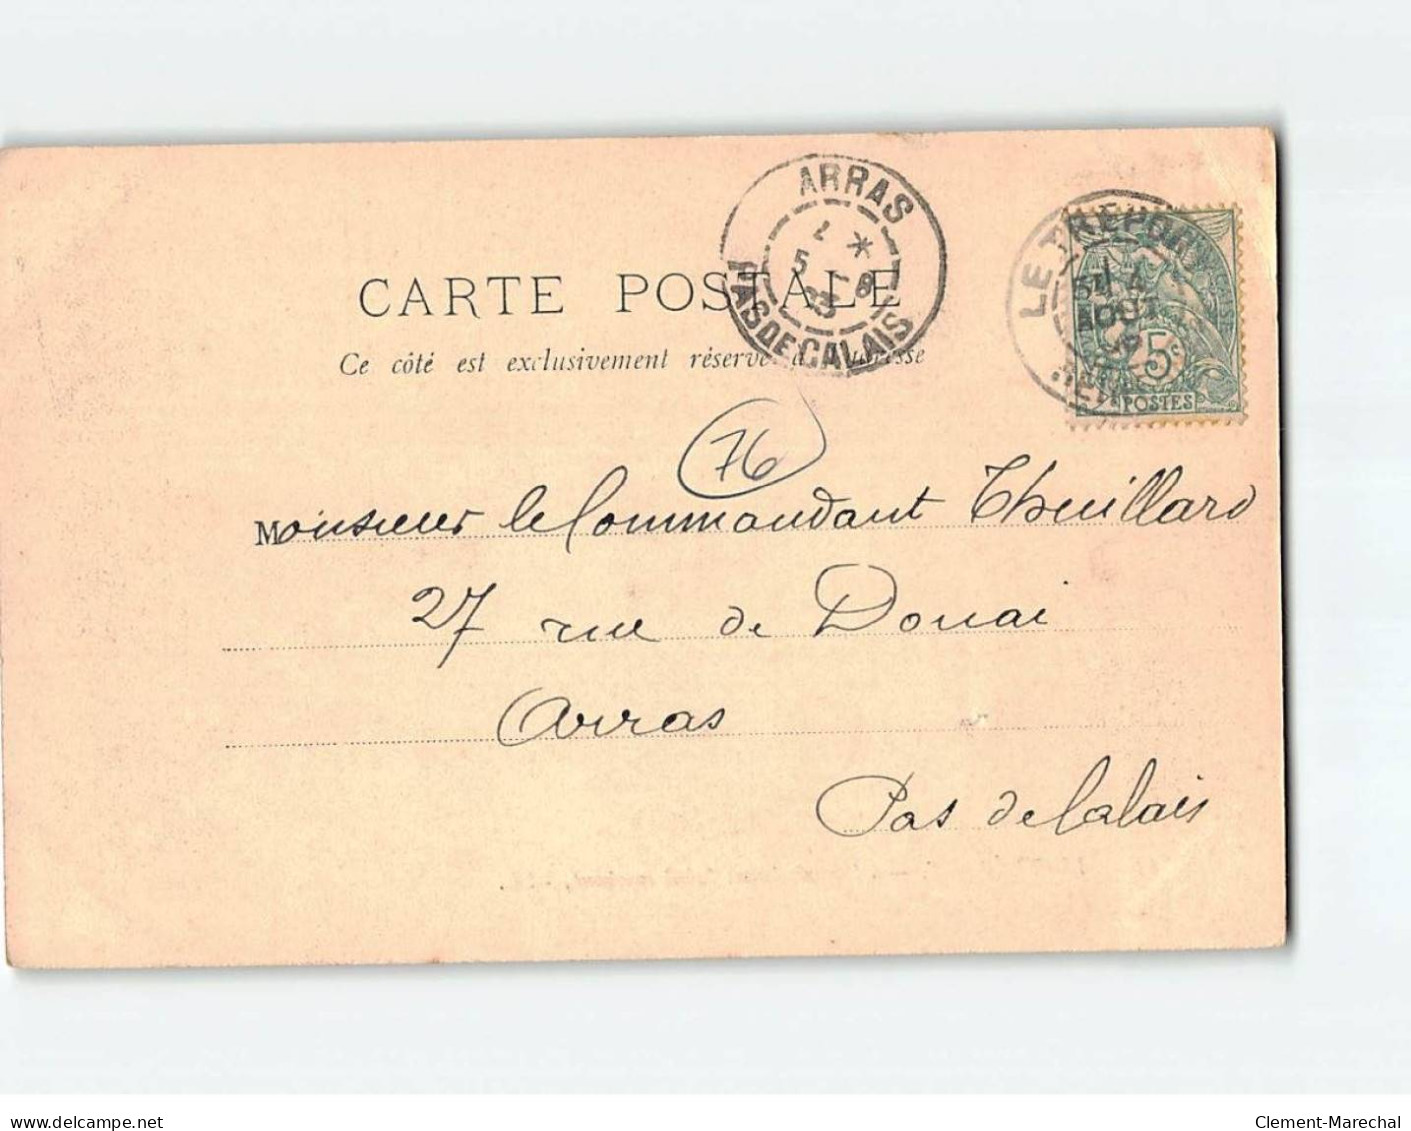 ARRAS
7 *
5 - 8
03
PAS DE CALAIS
LE TREPORT
4
AOUT
5c
POSTES
CARTE POSTALE
Ce côté est exclusivement réservé à l'adresse
76
Monsieur le Commandant Thuillard
27 rue de Douai
Arras
Pas de Calais
www.delcampe.net
Clement-Marechal